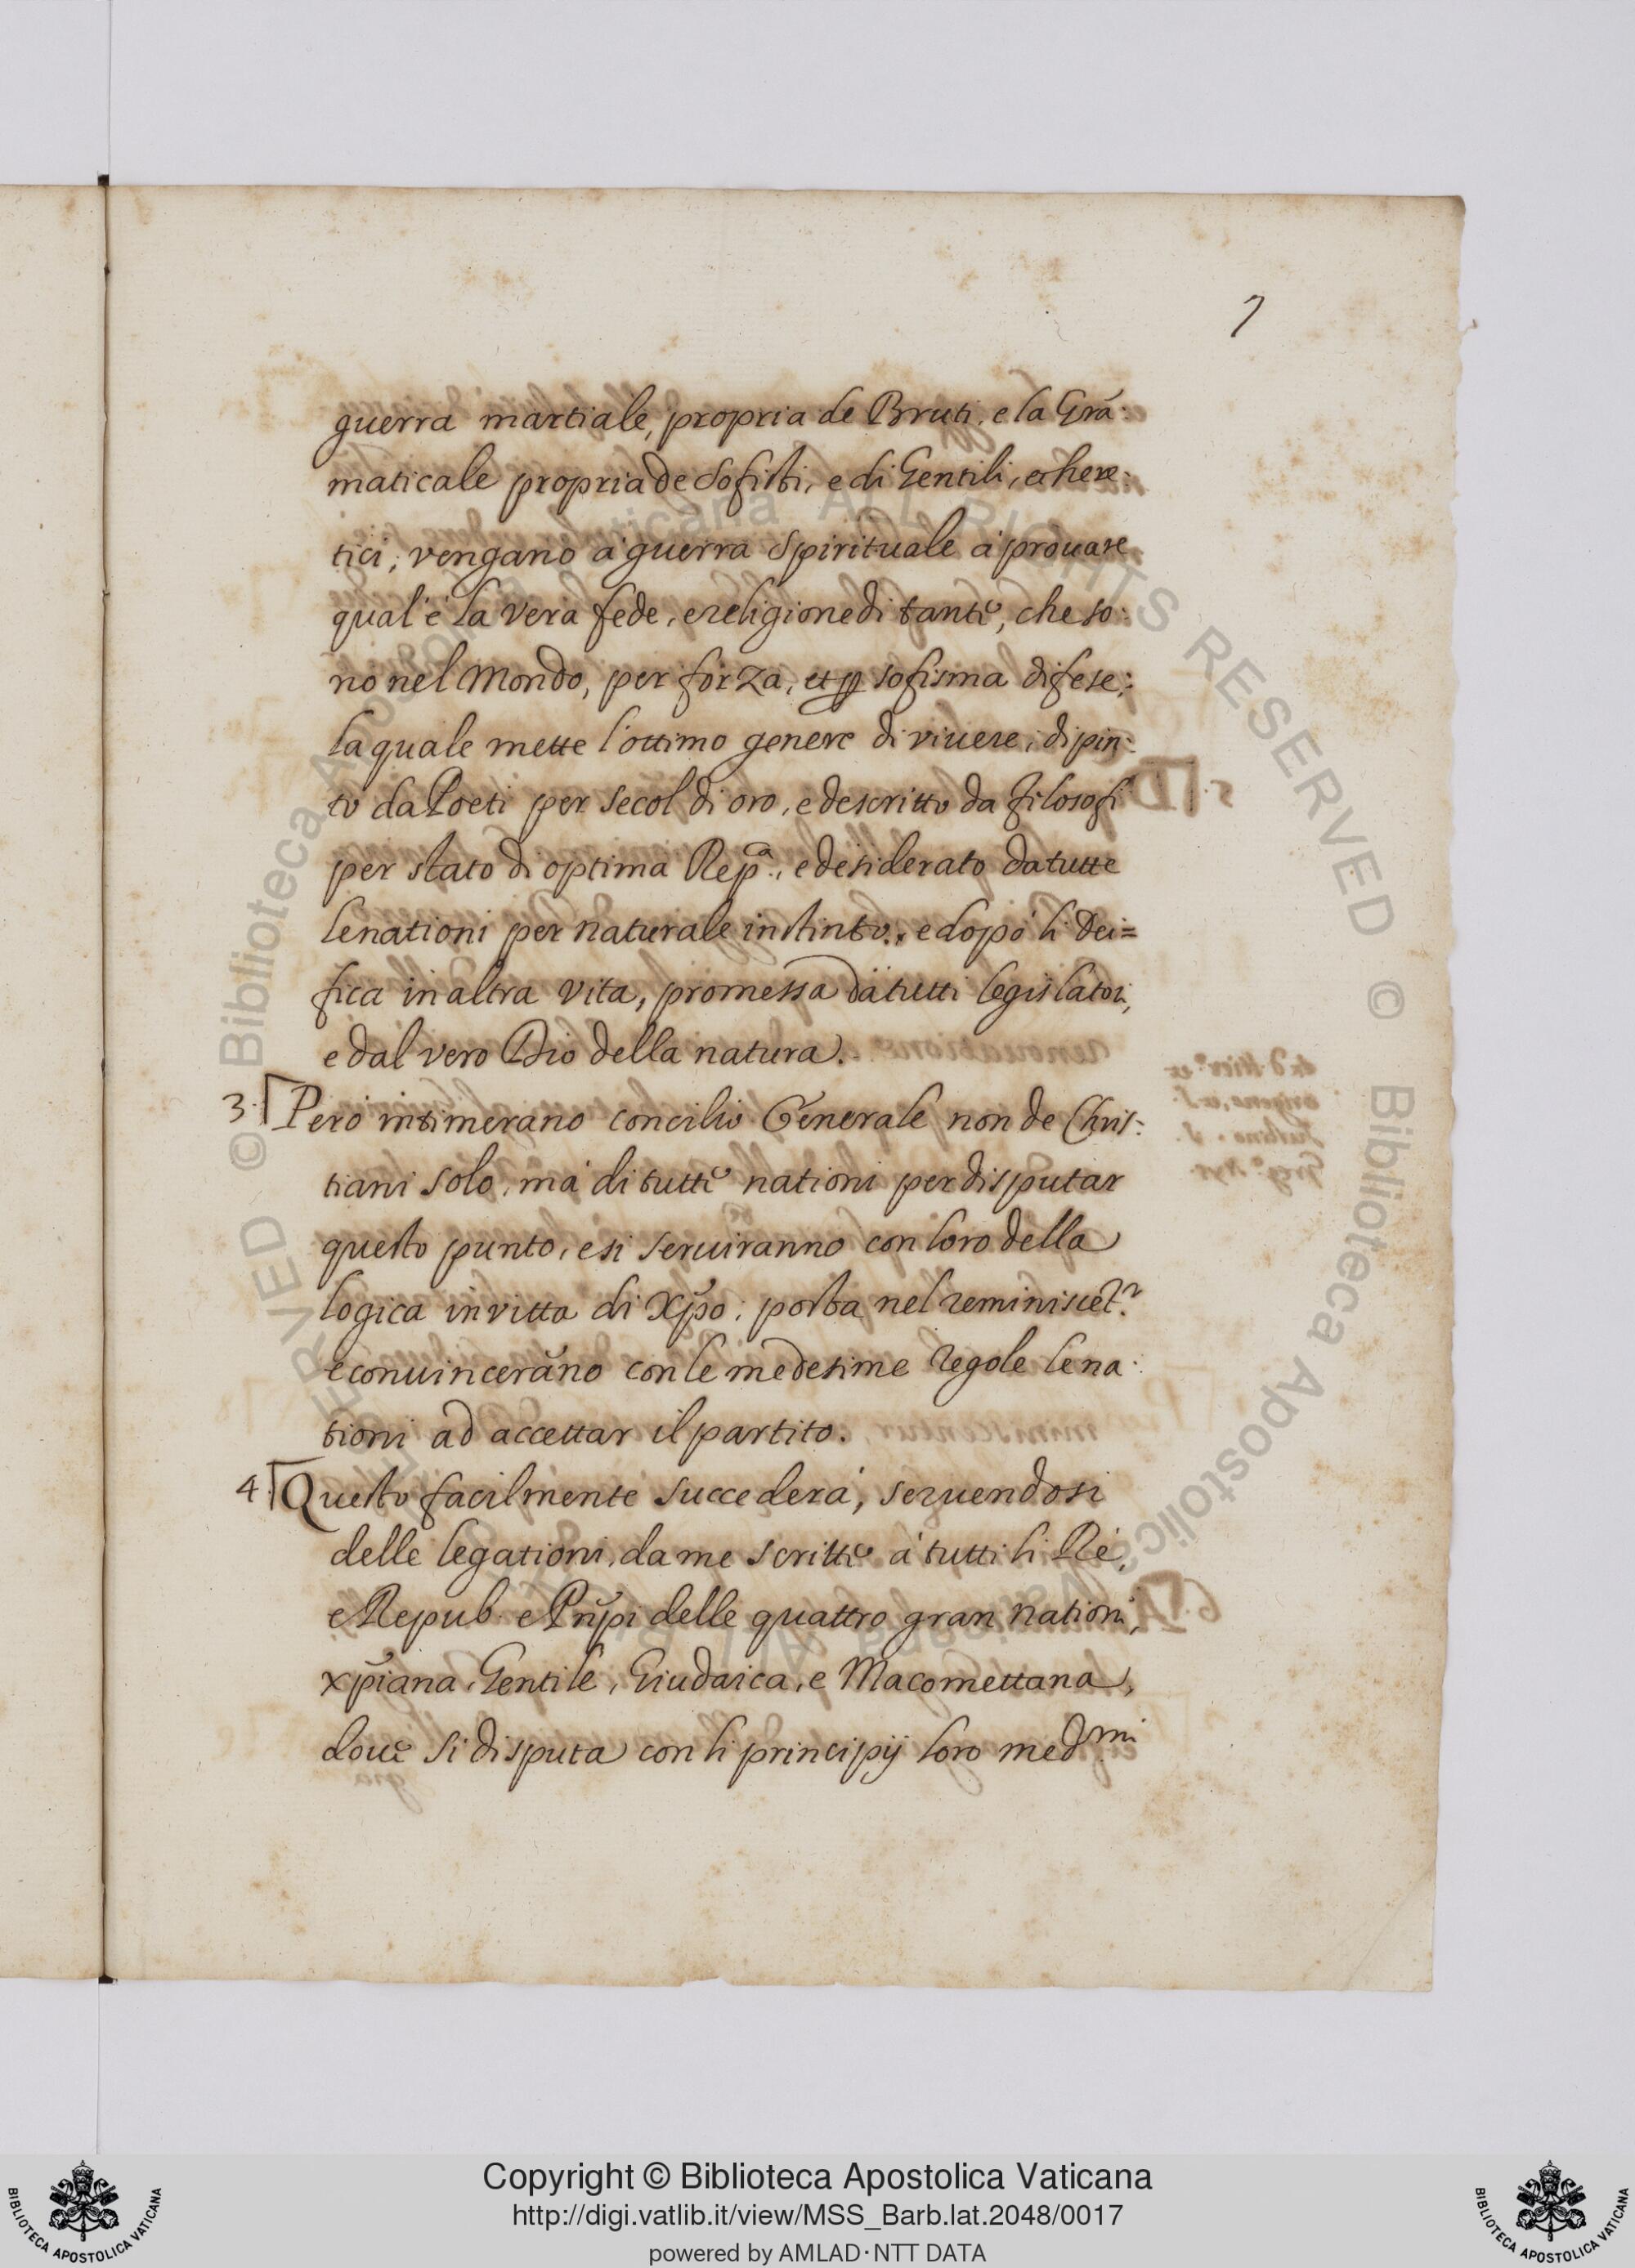 7
guerra martiale, propria de Bruti, e la Grã:
maticale propria de Sofisti, e di Gentili, et here:
tici, vengano à guerra Spirituale à prouare
qual'è la vera fede, e religione di tante, che so:
no nel Mondo, per forza, et per sofisma difese:
la quale mette l'ottimo genere di viuere, dipin:
to da Poeti per secol di oro, e descritto da filosofi
per stato di optima Rep.ª, e desiderato da tutte
le nationi per naturale instinto, e dopò li Dei=
fica in altra vita, promessa da tutti legislatori,
e dal vero Dio della natura.
3. Però intimerano concilio Generale non de Chris:
tiani solo, mà di tutte nationi per disputar
questo punto, e si seruiranno con loro della
logica invitta di Xp̃o, posta nel reminiscet.r
e conuincerãno con le medesime regole le na:
tioni ad accettar il partito.
4. Questo facilmente succederà, seruendosi
delle legationi, da me scritte à tutti li Rè,
e Repub. e Prñpi delle quattro gran nationi,
xp̃iana, Gentile, Giudaica, e Macomettana,
doue si disputa con li principij loro med.mi
Copyright © Biblioteca Apostolica Vaticana
http://digi.vatlib.it/view/MSS_Barb.lat.2048/0017
powered by AMLAD·NTT DATA
BIBLIOTECA APOSTOLICA VATICANA
BIBLIOTECA APOSTOLICA VATICANA